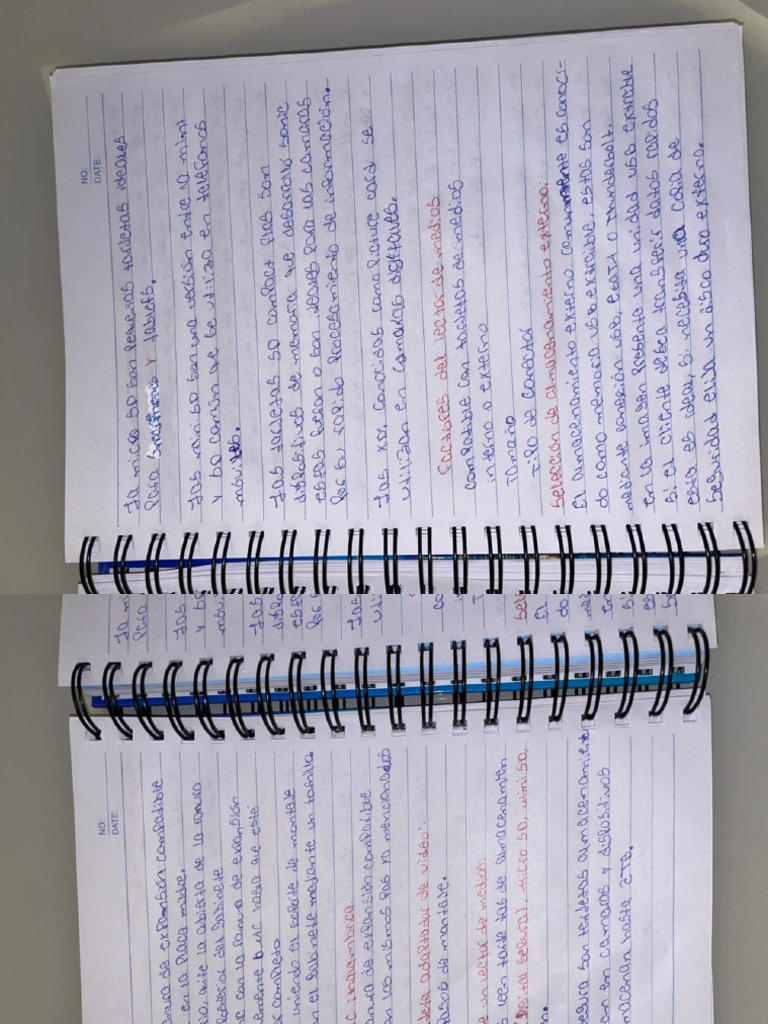 NO:
DATE:
La micro SD son pequeñas tarjetas ideales
para smarphones y tablets.
Las mini SD son una versión entre la mini
y SD común que se utiliza en teléfonos
móviles.
Las tarjetas SD compact flas son
dispositivos de memoria que desarrolló sonic
estas fueron o son ideales para las camaras
por su rapido procesamiento de información.
Las XDX conocidas como picture card se
utilizan en camaras digitales.
Factores del lector de medios
compatible con tarjetas de medios
interno o externo
Tamaño
Tipo de conector
Selección de almacenamiento externo:
El almacenamiento externo comunmente es conoci-
do como memoria USB extraible, estas son
mediante conexión USB, eSATA o Thunderbolt.
En la imagen presente una unidad USB extraible
Si el cliente debea transferir datos rapidos
esta es ideal, si necesita una copia de
seguridad elija un disco duro externo.
NO:
DATE:
anura de expansión compatible
en la placa madre.
, quite la cubierta de la ranura
posterior del gabinete
con la ranura de expansión
mente b.MC hasta que esté
completo
uniendo el soporte de montaje
n el gabinete mediante un tornillo.
C inalambrica.
nura de expansión compatible
on los mismos pasos ya mencionados
adaptador de video:
pasos de montaje.
e un lector de medios:
leen tarjetas de almacenamien
Digital Segura), micro SD, mini SD,
n.
segura son tarjetas almacenamiento
an en camaras y dispositivos
macenan hasta 2TB.